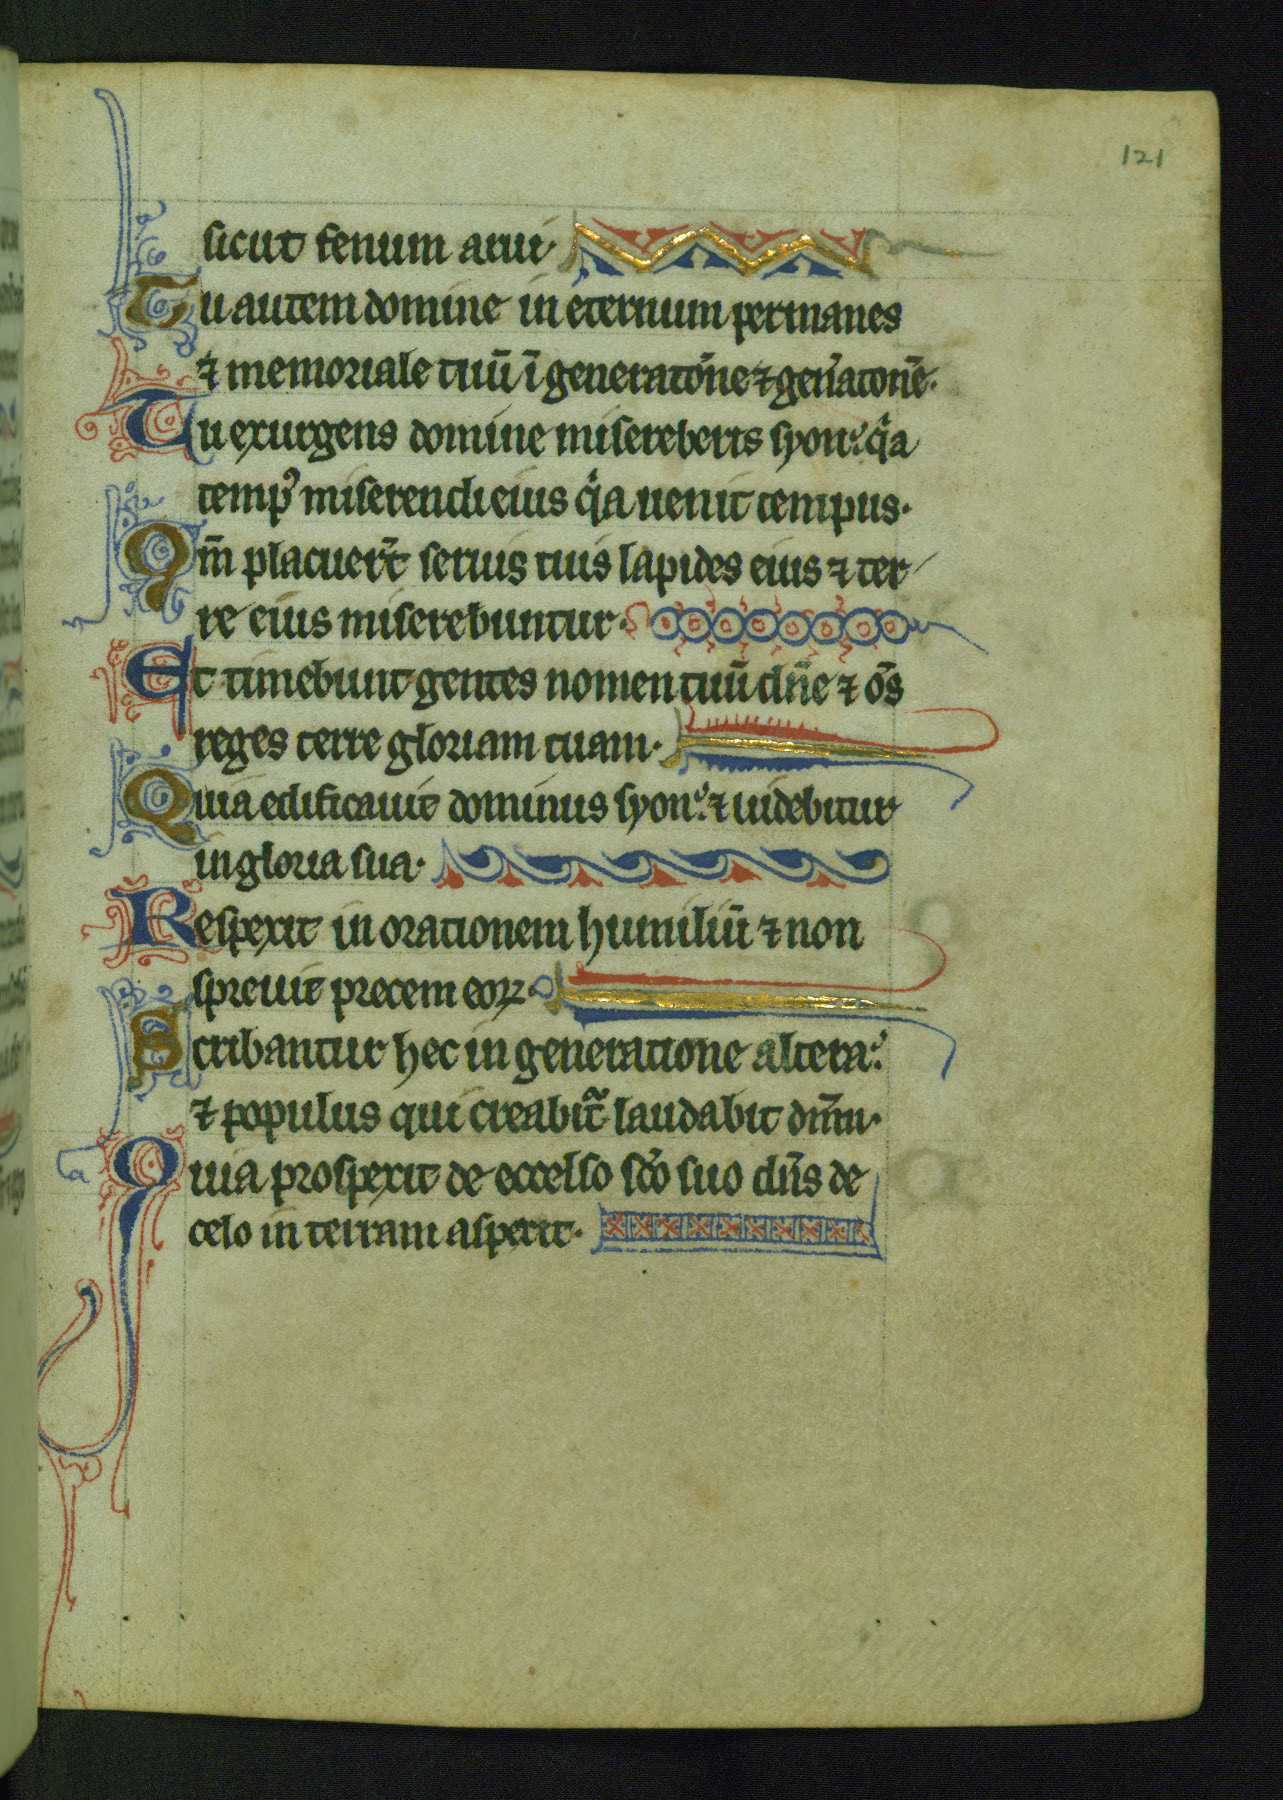 121
sicut fenum arui·
Tu autem domine in eternum permanes
⁊ memoriale tuū ī generatōne ⁊ gen̄atonē·
Tu exurgens domine misereberis syon: qⁱa
temp᾿ miserendi eius qⁱa uenit tempus·
Qm̄ placuer̄t seruis tuis lapides eius ⁊ ter
re eius miserebuntur·
Et timebunt gentes nomen tuū dn̄e ⁊ oo̅s
reges terre gloriam tuam·
Quia edificauit dominus syon: ⁊ uidebitur
in gloria sua·
Respexit in orationem humiliū ⁊ non
spreuit precem eoꝝ
Scribantur hec in generatione altera:
⁊ populus qui creabit̄ laudabit dn̄m·
Quia prospexit de excelso sc̄o suo dn̄s de
celo in terram asperit·